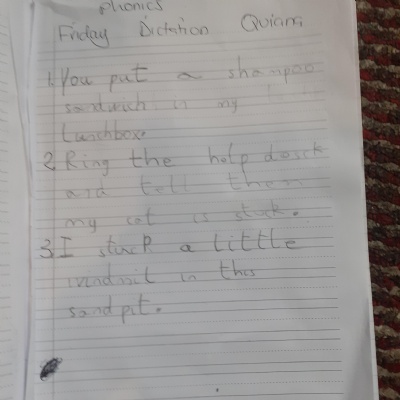 Phonics
Friday Dictation Quiam
1. You put a shampoo
sandwich in my
Lunchbox.
2. Ring the help desck
and tell them
my cat is stuck.
3. I stuck a little
windmil in the
sandpit.